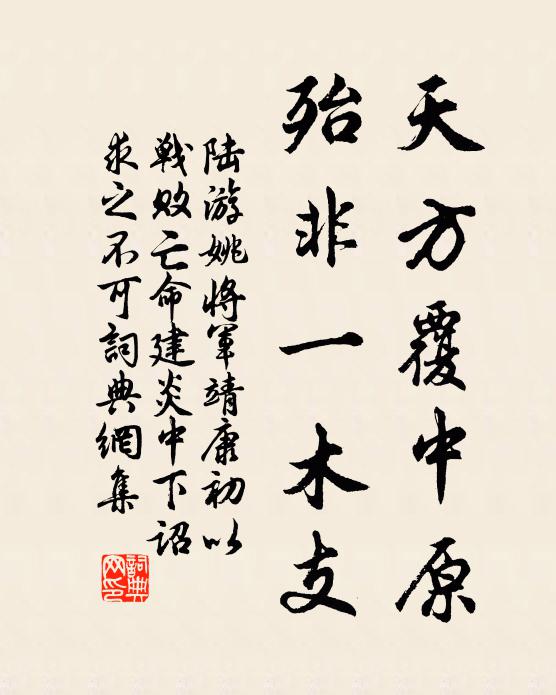 天方覆中原
殆非一木支
陆游姚將軍靖康初以
戦敗亡命建炎中下詔
求之不可詞典網集
詞典网印